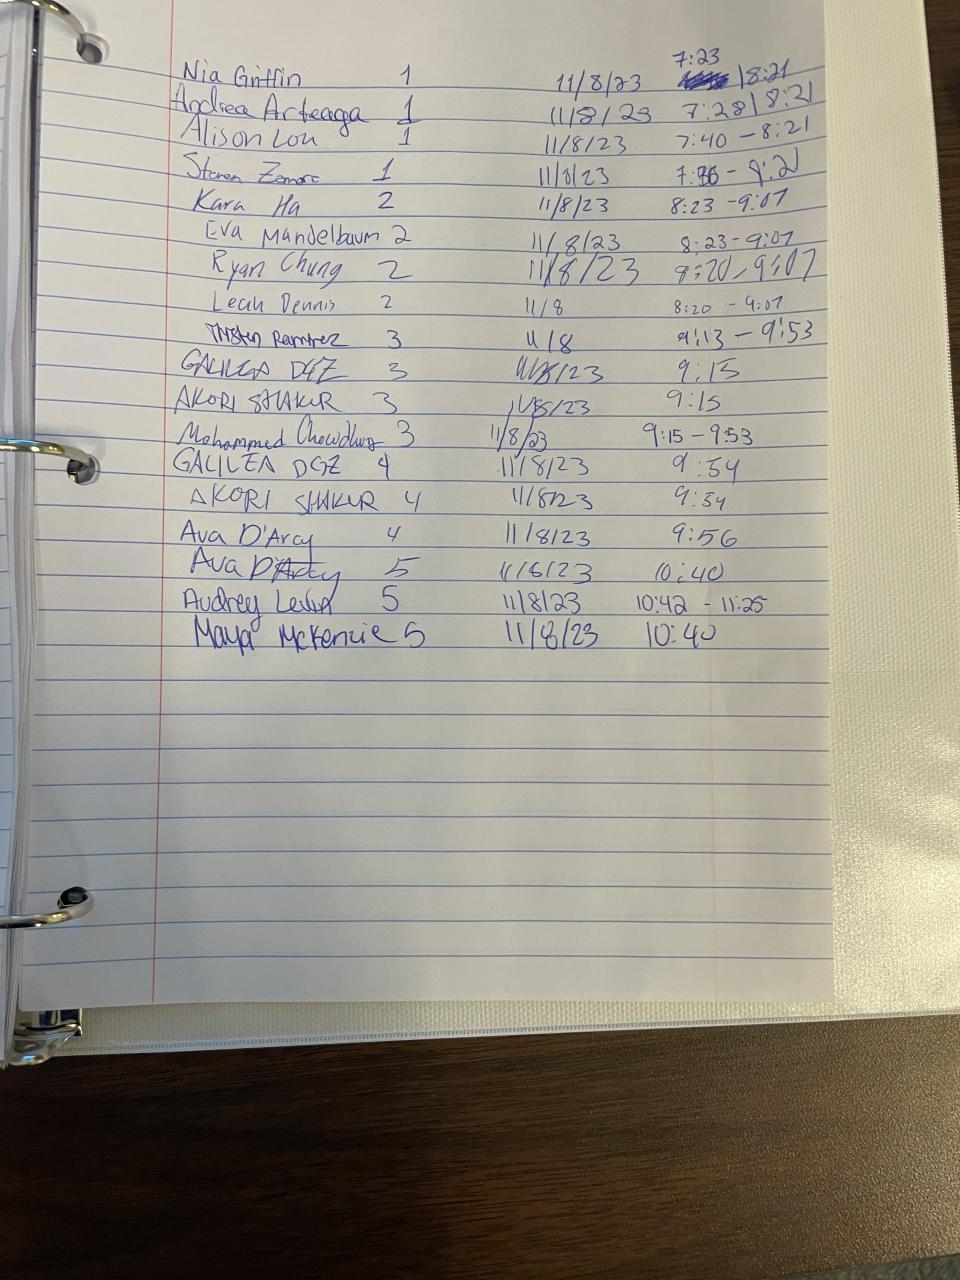 Nia Griffin 1 11/8/23 7:23 | 8:21
Andrea Arteaga 1 11/8/23 7:28 | 8:21
Alison Lou 1 11/8/23 7:40 - 8:21
Steven 1 11/8/23 - 8:21
Kara Ha 2 11/8/23 8:23 - 9:07
Eva Mandelbaum 2 11/8/23 8:23 - 9:07
Ryan Chung 2 11/8/23 8:20, 9:07
Leah Dennis 2 11/8 8:20 - 9:07
Ramirez 3 11/8 9:13 - 9:53
GALILEA DGZ 3 11/8/23 9:15
AKORI SHAKUR 3 11/8/23 9:15
Mohammed Chowdhury 3 11/8/23 9:15 - 9:53
GALILEA DGZ 4 11/8/23 9:54
AKORI SHAKUR 4 11/8/23 9:54
Ava D'Arcy 4 11/8/23 9:56
Ava D'Arcy 5 11/8/23 10:40
Audrey Levin 5 11/8/23 10:42 - 11:25
Maya McKenzie 5 11/8/23 10:40